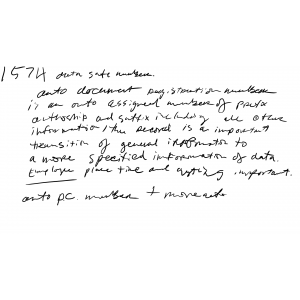 1574 data safe number.
auto document registration number
is an auto assigned number of prefix
authorship and suffix including all other
information / the record is a important
transition of general information to
a more specified information of data.
Employee place time and anything important.
auto pc. number + more auto